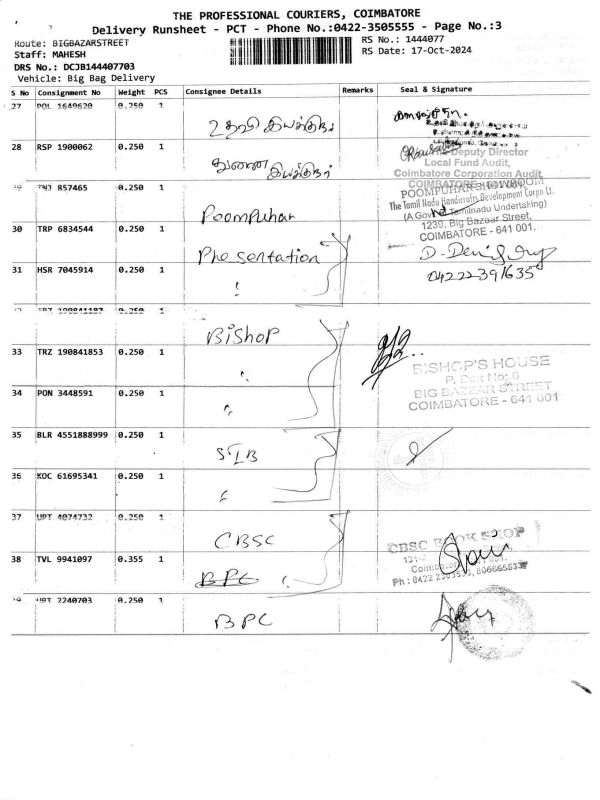 THE PROFESSIONAL COURIERS, COIMBATORE
Delivery Runsheet - PCT - Phone No.:0422-3505555 - Page No.:3
Route: BIGBAZARSTREET
Staff: MAHESH
DRS No.: DCJB144407703
Vehicle: Big Bag Delivery
RS No.: 1444077
RS Date: 17-Oct-2024
S No Consignment No Weight PCS Consignee Details Remarks Seal & Signature
27 POL 1649620 0.250 1
உதவி இயக்குநர்
28 RSP 1900062 0.250 1
துணை இயக்குநர்
Deputy Director
Local Fund Audit,
Coimbatore Corporation Audit,
857465 0.250 1
Poompuhar
POOMPUHAR SHOWROOM
The Tamil Nadu Handicrafts Development Corpn Lt.
(A Govt. of Tamilnadu Undertaking)
1239, Big Bazaar Street,
COIMBATORE - 641 001.
30 TRP 6834544 0.250 1
Presentation
04222391635
31 HSR 7045914 0.250 1
190841187 0.250 1
Bishop
33 TRZ 190841853 0.250 1
BISHOP'S HOUSE
P. Box No: 6
BIG BAZZAR STREET
COIMBATORE - 641 001
34 PON 3448591 0.250 1
35 BLR 4551888999 0.250 1
SIB
36 KOC 61695341 0.250 1
37 UPT 4074732 0.250 1
CBSC
CBSC BOOK SHOP
38 TVL 9941097 0.355 1
BPC
2240703 0.250 1
BPC